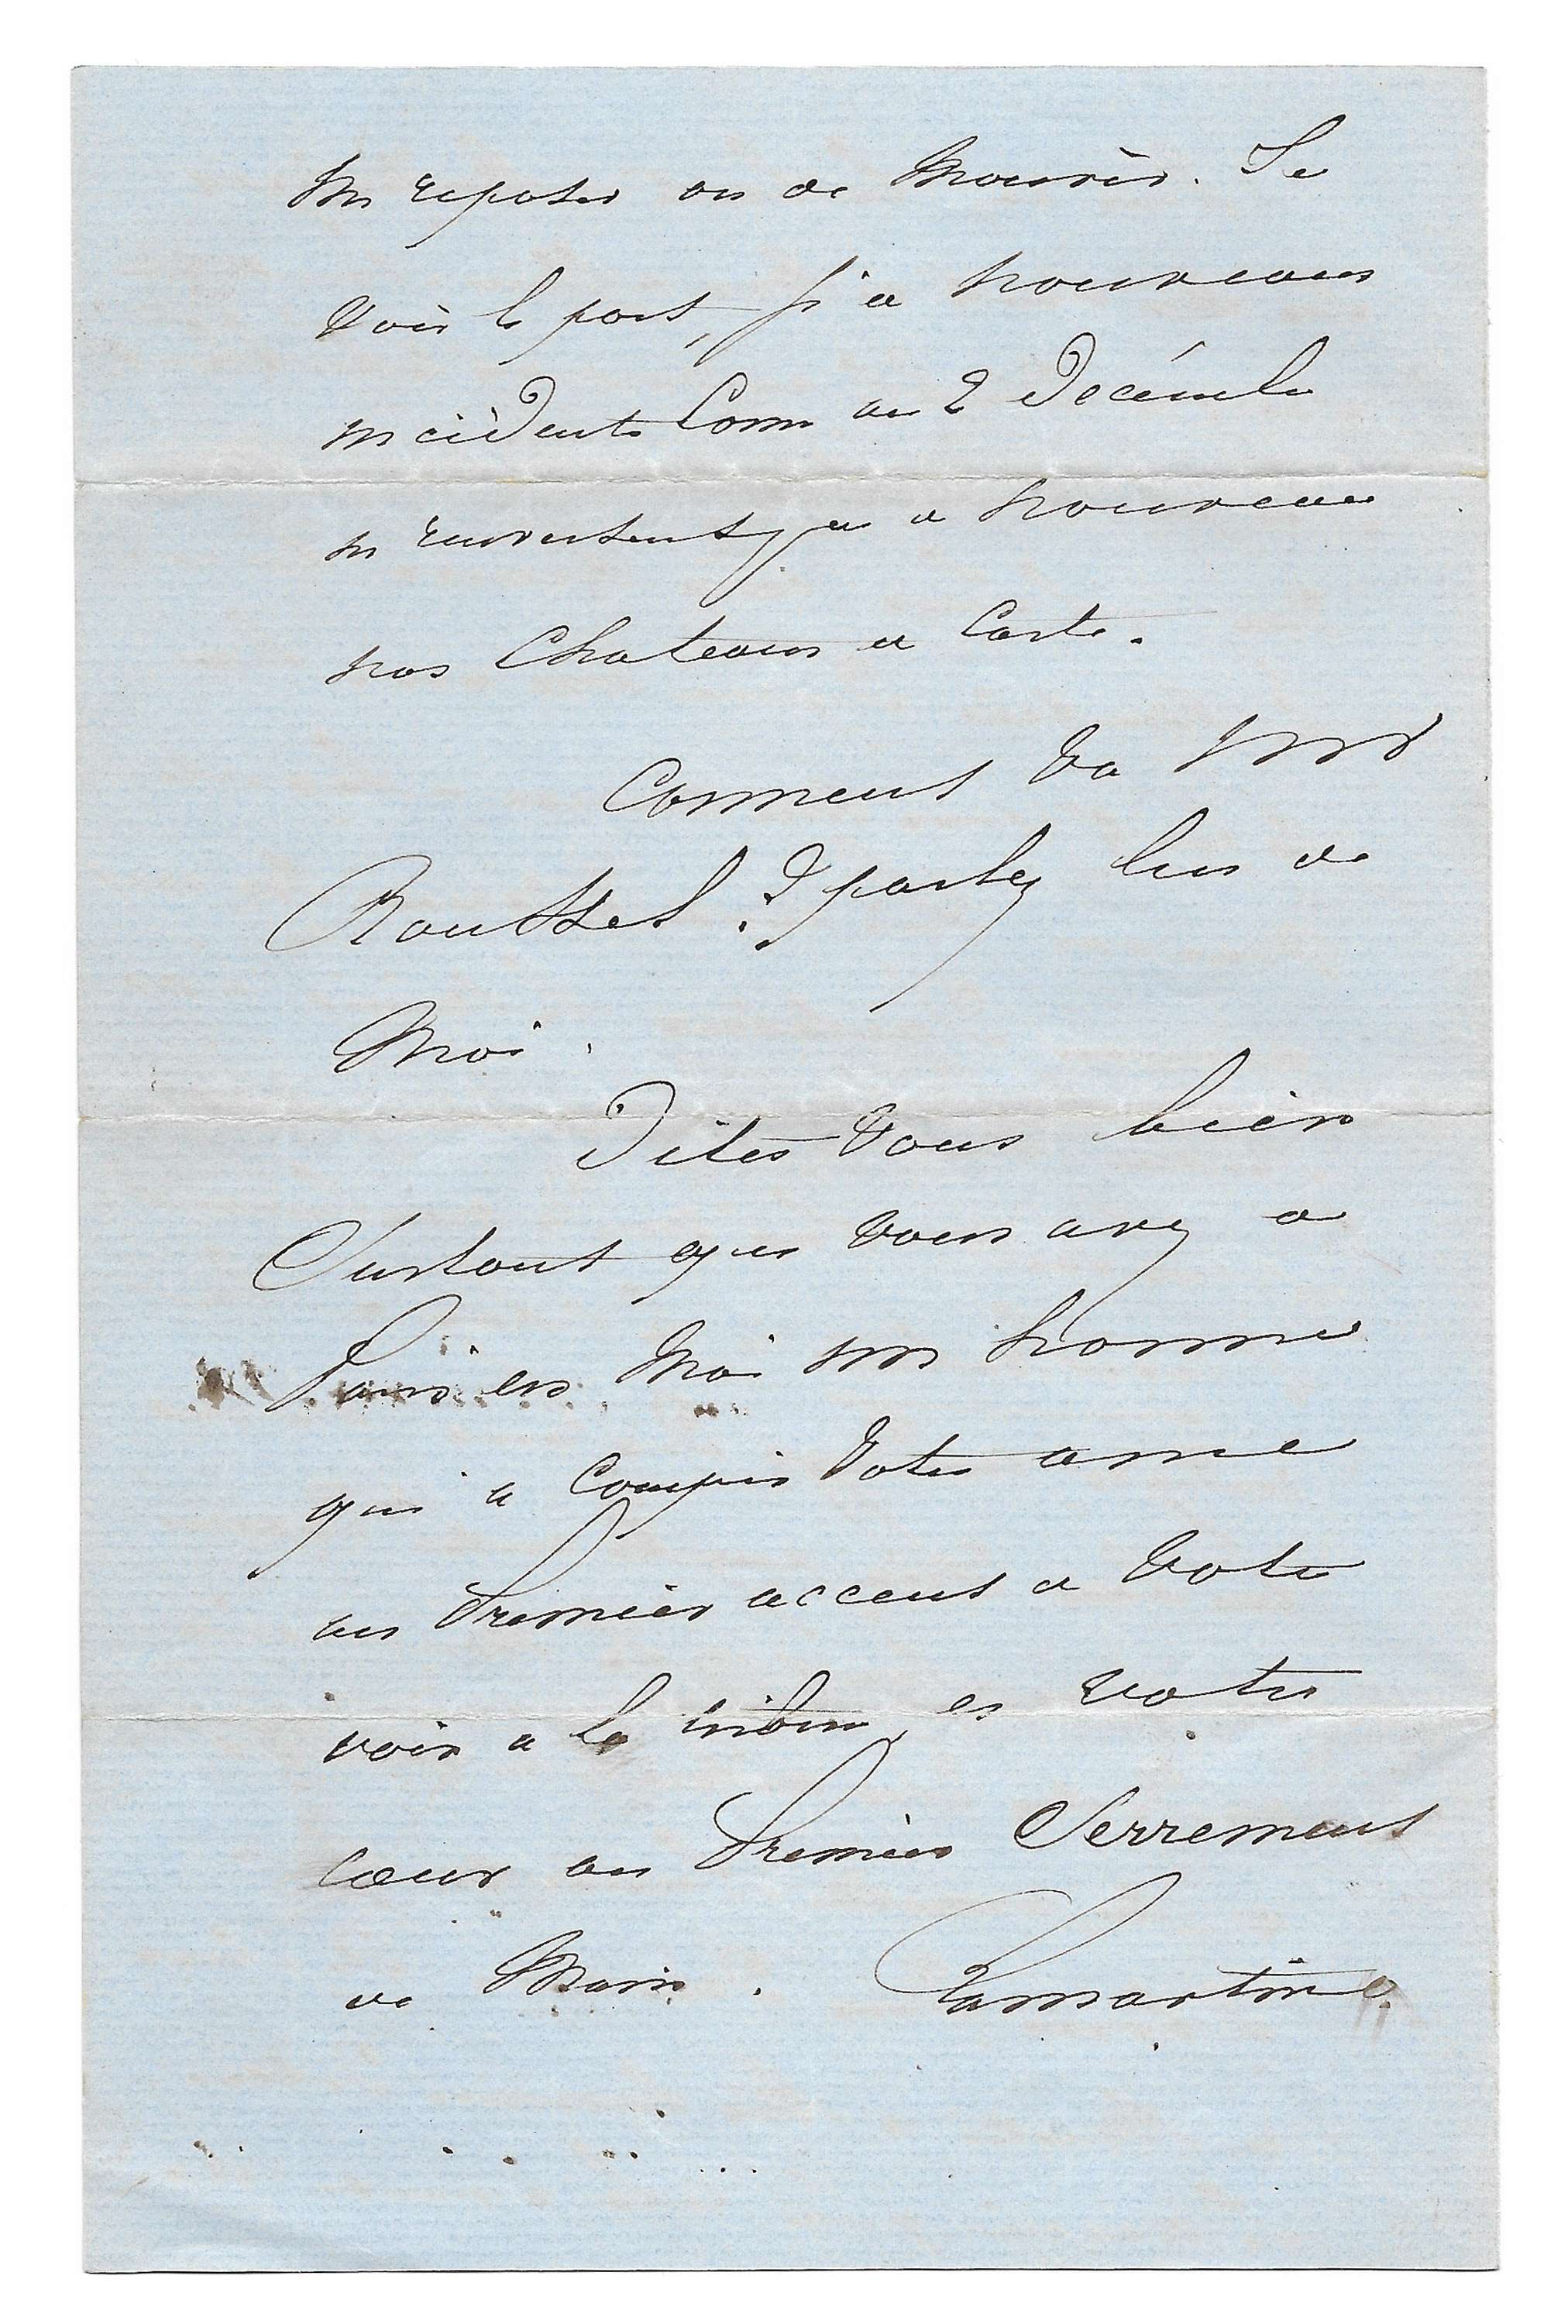 me reposer ou de mourir. Je
vois le port, si de nouveaux
incidents comme au 2 Décembre
ne renversent pas a nouveau
nos chateaux de carte.
Comment va Mr
Roussel ? parlez lui de
moi.
Dites vous bien
surtout que vous avez a
Paris en moi un homme
qui a compris votre ame
au premier accent de votre
voix a la tribune, et votre
cœur au premier serrement
de main. Lamartine